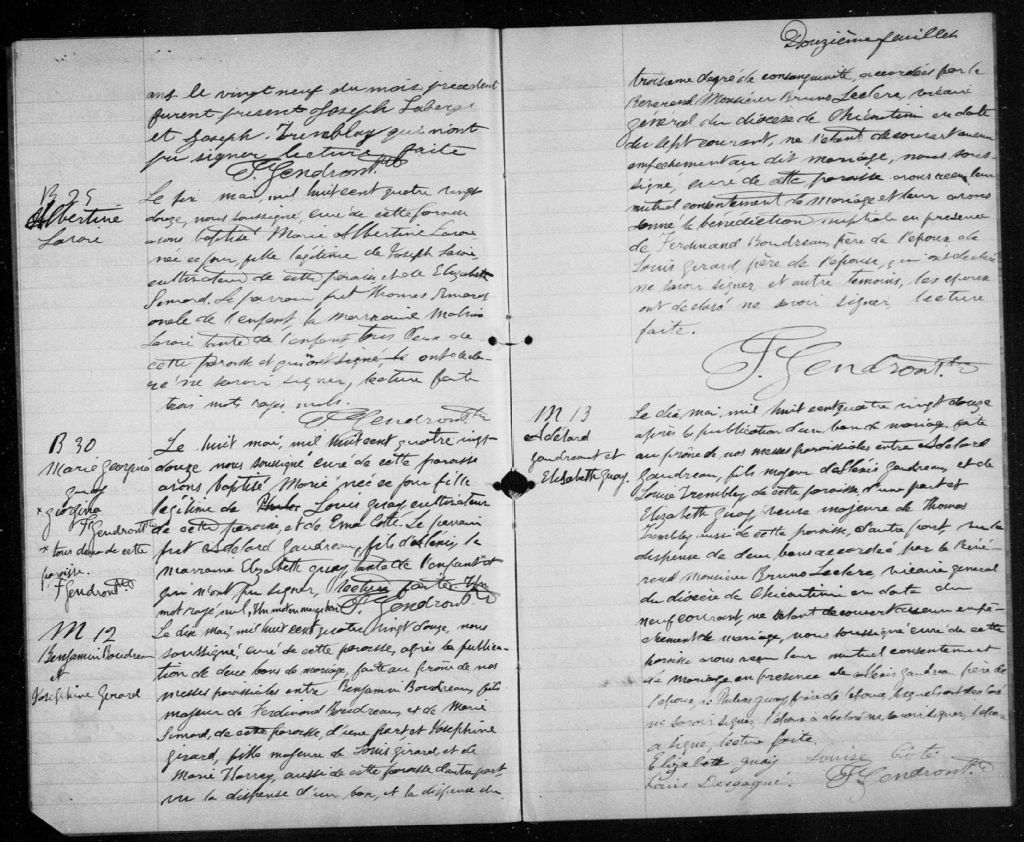 ans. le vingt neuf du mois précédent
furent present Joseph Laberge
et Joseph Tremblay qui n'ont
pu signer, lecture faite
F. Gendron Ptre
B 29
Albertine
Lavoie
Le six mai, mil huit cent quatre vingt
douze, nous soussigné, curé de cette paroisse
avons baptisé Marie Albertine Lavoie
née ce jour, fille légitime de Joseph Lavoie,
cultivateur de cette paroisse et de Elizabeth
Simard. Le parrain fut Thomas Simard
oncle de l'enfant, la marraine
Lavoie tante de l'enfant tous deux de
cette paroisse et qui ont signé le ont décla-
ré ne savoir signer, lecture faite
trois mots rayés nuls.
F. Gendron Ptre
B 30
Marie Georgina
Guay
x Georgina
F Gendron Ptre
x tous deux de cette
paroisse.
F Gendron Ptre
Le huit mai, mil huit cent quatre vingt
douze nous soussigné curé de cette paroisse
avons baptisé Marie née ce jour fille
légitime de Louis Guay cultivateur
de cette paroisse, et de Ema Cotté. Le parrain
fut Adelard Gaudreau, fils d'Alexis, la
marraine Elizabeth Guay tante de l'enfant et
qui n'ont pu signer, lecture faite. Un
mot rayé nul, Un mot en marge bon F. Gendron Ptre
M 12
Benjamin Boudreau
et
Josephine Gerard
Le dix mai, mil huit cent quatre vingt douze, nous
soussigné, curé de cette paroisse, après la publica-
tion de deux bans de mariage, faite au prône de nos
messes paroissiales entre Benjamin Boudreau, fils
majeur de Ferdinand Boudreau, et de Marie
Simard, de cette paroisse, d'une part et Joséphine
Girard, fille majeure de Louis Girard, et de
Marie Harvey, aussi de cette paroisse d'autre part,
vu la dispense d'un ban, et la dispense du
Douzième feuillet
troisième degré de consanguinité, accordées par le
Révérend Monsieur Bruno Leclerc, vicaire
général du diocèse de Chicoutimi en date
du sept courant, ne s'étant découvert aucun
empêchement au dit mariage, nous sous-
signé, curé de cette paroisse avons reçu leur
mutuel consentement de mariage et leur avons
donné la bénédiction nuptiale en présence
de Ferdinand Boudreau, père de l'époux, de
Louis Girard, père de l'épouse, qui ont déclaré
ne savoir signer, et autre témoins, les époux
ont déclaré ne savoir signer, lecture
faite.
F. Gendron Ptre
M 13
Adelard
Gaudreau et
Elisabeth Guay.
Le dix mai, mil huit cent quatre vingt douze
après la publication d'un ban de mariage, faite
au prône de nos messes paroissiales entre Adelard
Gaudreau, fils majeur d'Alexis Gaudreau, et de
Louise Tremblay de cette paroisse, d'une part et
Elizabeth Guay, veuve majeure de Thomas
Tremblay aussi de cette paroisse, d'autre part, vu la
dispense de deux bans accordée par le Révé-
rend Monsieur Bruno Leclerc, vicaire général
du diocèse de Chicoutimi en date du
neuf courant, ne s'étant découvert aucun empê-
chement de mariage, nous soussigné curé de cette
paroisse avons reçu leur mutuel consentement
de mariage en presence de Alexis Gaudreau père de
l'époux, de Guay frère de l'épouse, lesquels ont déclaré
ne savoir signer, l'époux a déclaré ne savoir signer, l'épouse
a signé, lecture faite.
Elizabeth Guay Louise Côté
Louis Desgagné. F. Gendron Ptre